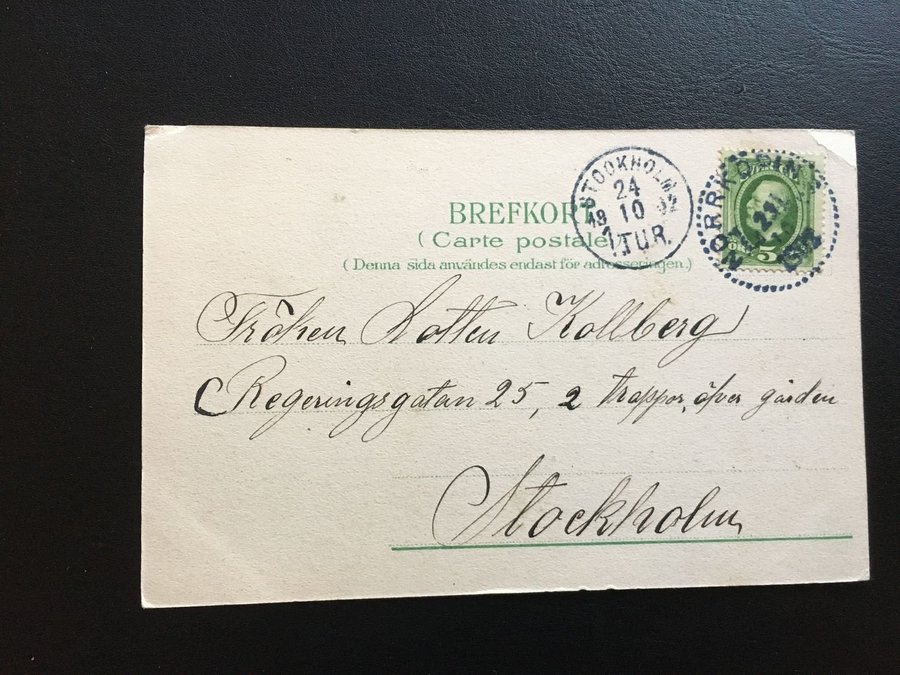 BREFKORT
(Carte postale)
(Denna sida användes endast för adresseringen.)
STOCKHOLM
24
10
1.TUR.
NORRKÖPING
5
Fröken Lotten Kollberg
Regeringsgatan 25, 2 trappor, öfver gården
Stockholm